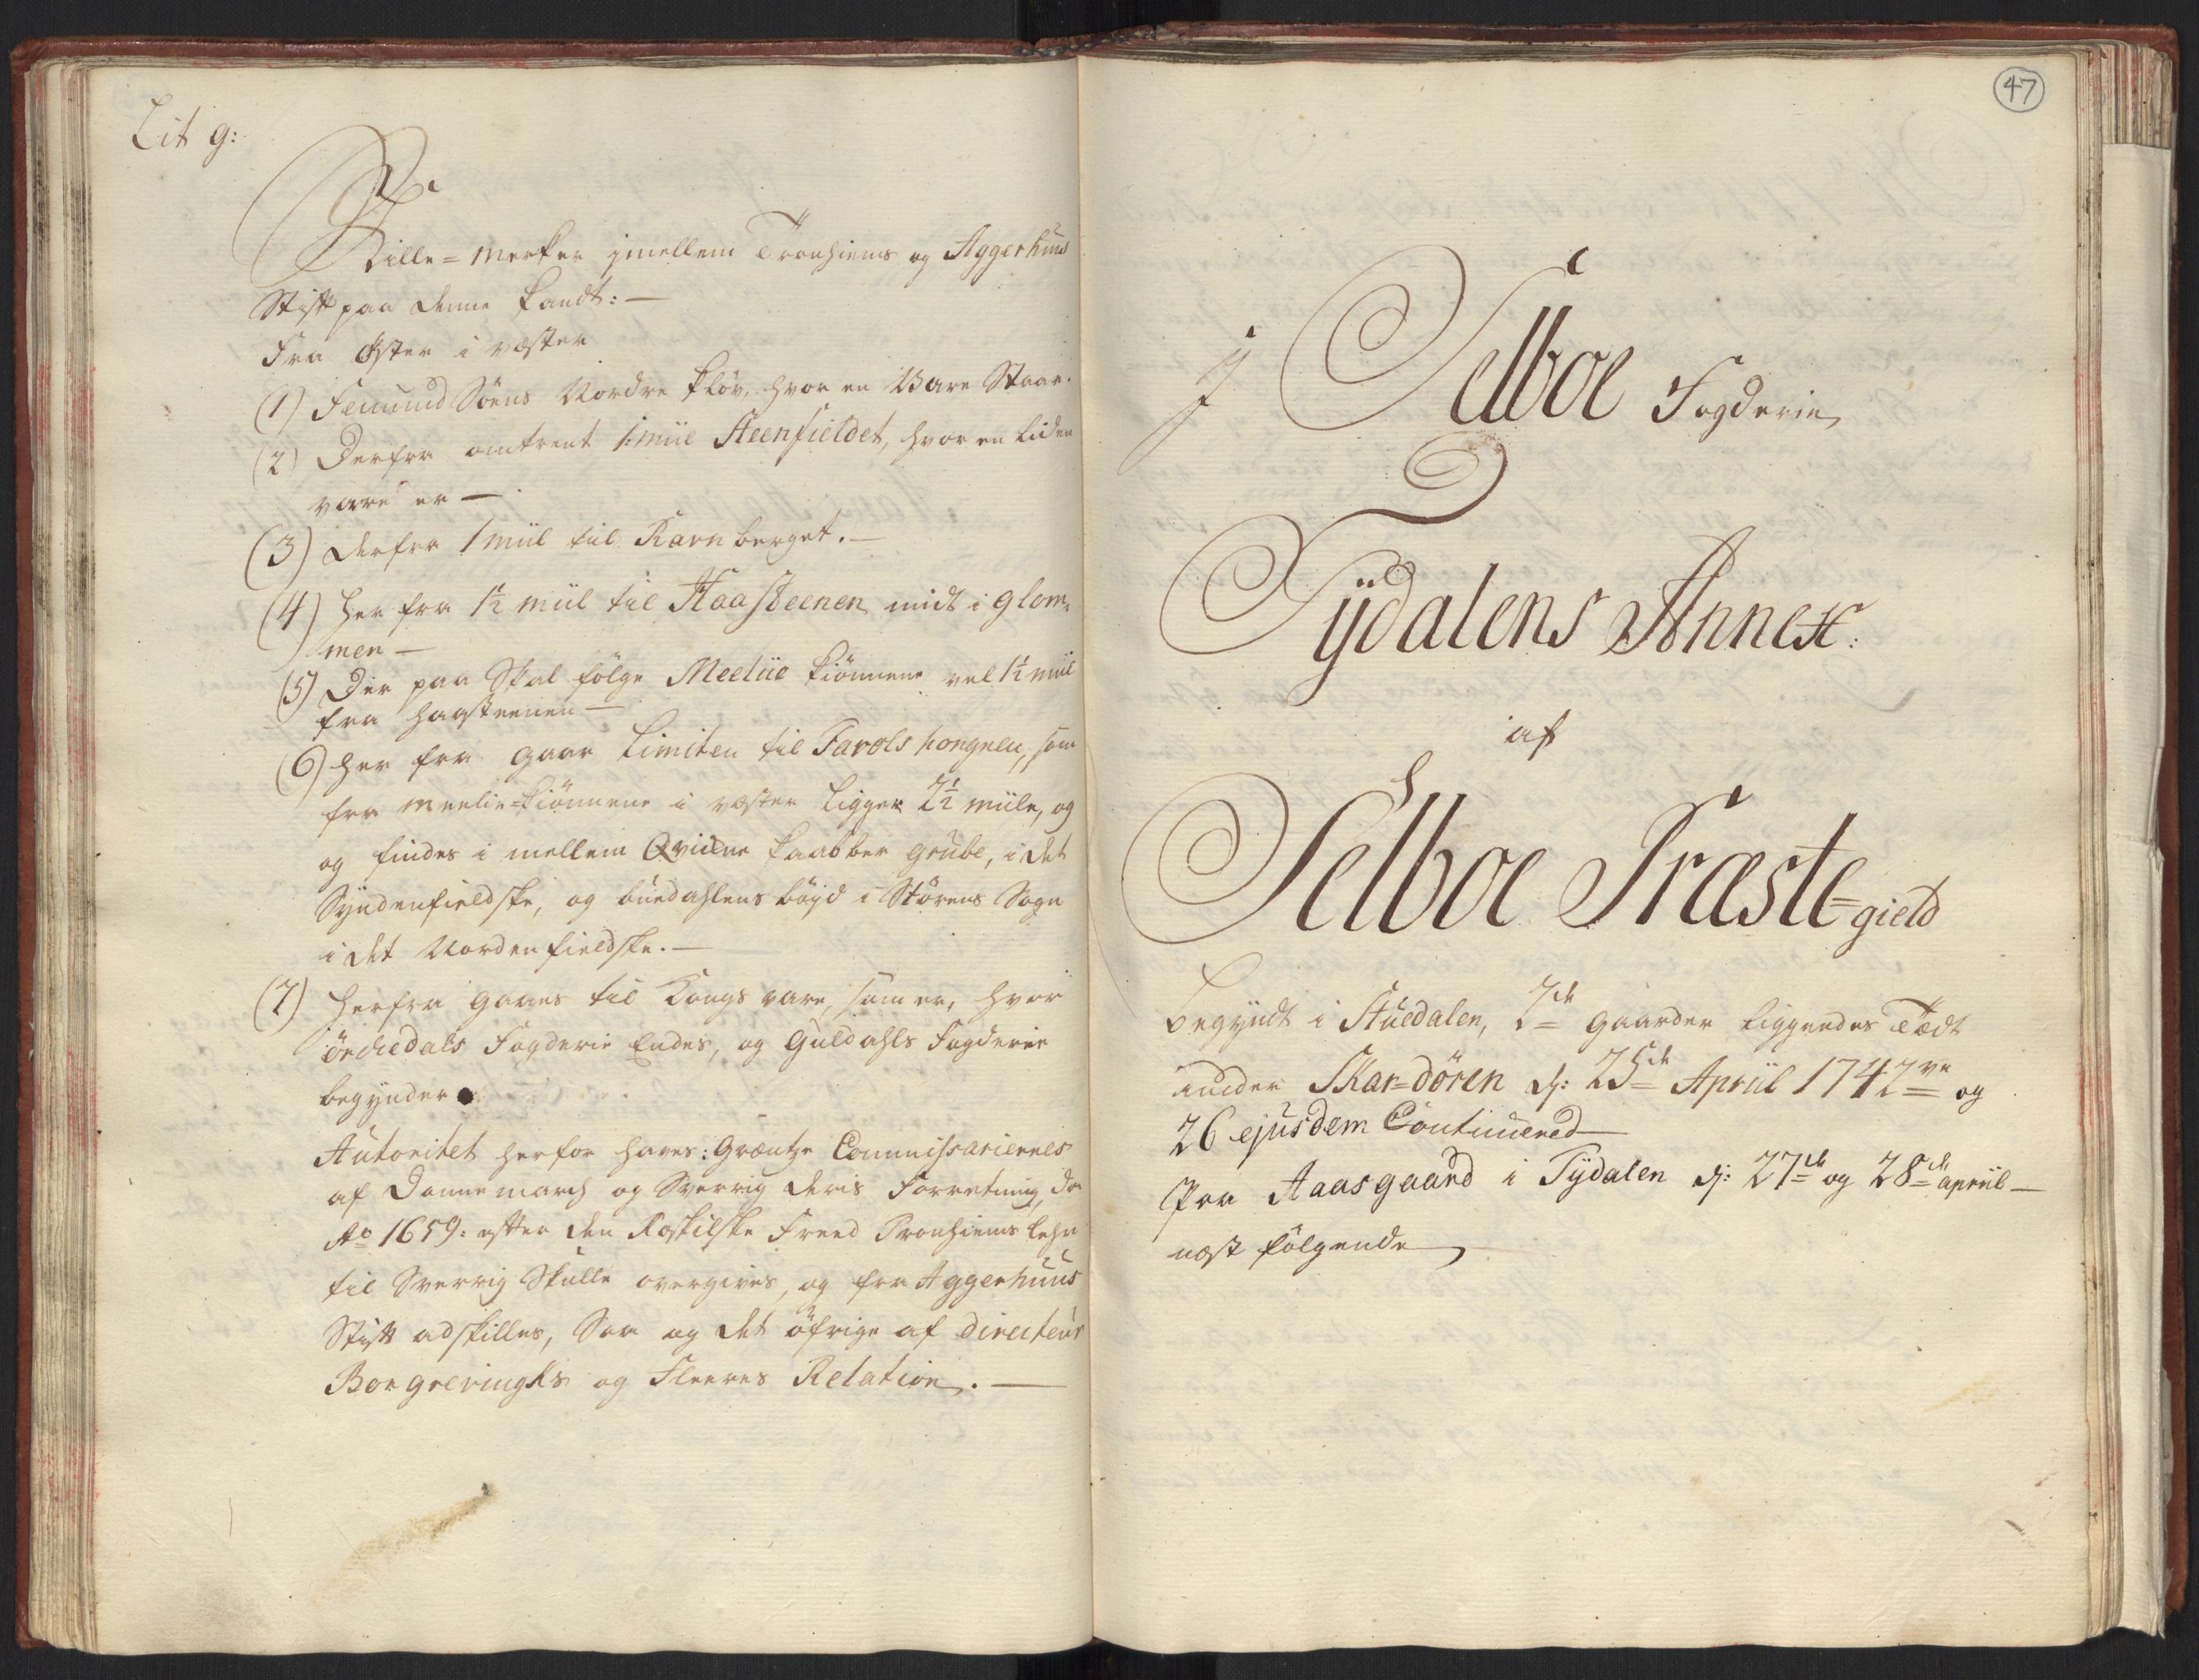 Lit g:
Skille=Merker imellem Tronhiems og Aggerhuus
Stift paa denne kandt: —
Fra Øster i væster
(1) Femund Söens Nordre kløv, hvor en Vare Staar.
(2) Derfra omtrent 1: miil Steenfieldet, hvor en liden
vare er —
(3) derfra 1 miil til Ravnberget. —
(4) her fra 1½ miil til Haasteenen midt i glom-
men —
(5) Der paa Skal følge Meeliie kiönnene vel 1½ miil
fra haasteenen —
(6) her fra gaar Limiten til Farols hongnen, som
fra meelie=kiönnene i væster ligger 2½ miile, og
og findes i mellem Qvickne kaabber grube, i det
Syndenfieldske, og buedahlens bøyd i Störens Sogn
i det Nordenfieldske. —
(7) herfra gaaes til Kongs vare, som er, hvor
örchedals Fogderie Endes, og Guldahls Fogderie
begynder.
Autoritet herfor haves: Grœntze Commissariernes
af Dannemarch og Sverrig deris Forretning, da
Ao 1659: efter den Roskilske Freed Tronhiems lehn
til Sverrig Skulle overgives, og fra Aggerhuus
Stift adskilles, Saa og det öfrige af Directeur
Borgrevingks og Fleeres Relation. —
47
J Selboe Fogderie
Tÿdalens Annex:
af
Selboe Præste=gield
begyndt i Stuedalen, 2de gaarder liggendes Tædt
under Skar=dören d: 25de Apriil 1742ve og
26 ejusdem Continuered —
Paa Aasgaard i Tÿdalen d: 27de og 28de apriil —
næst følgende